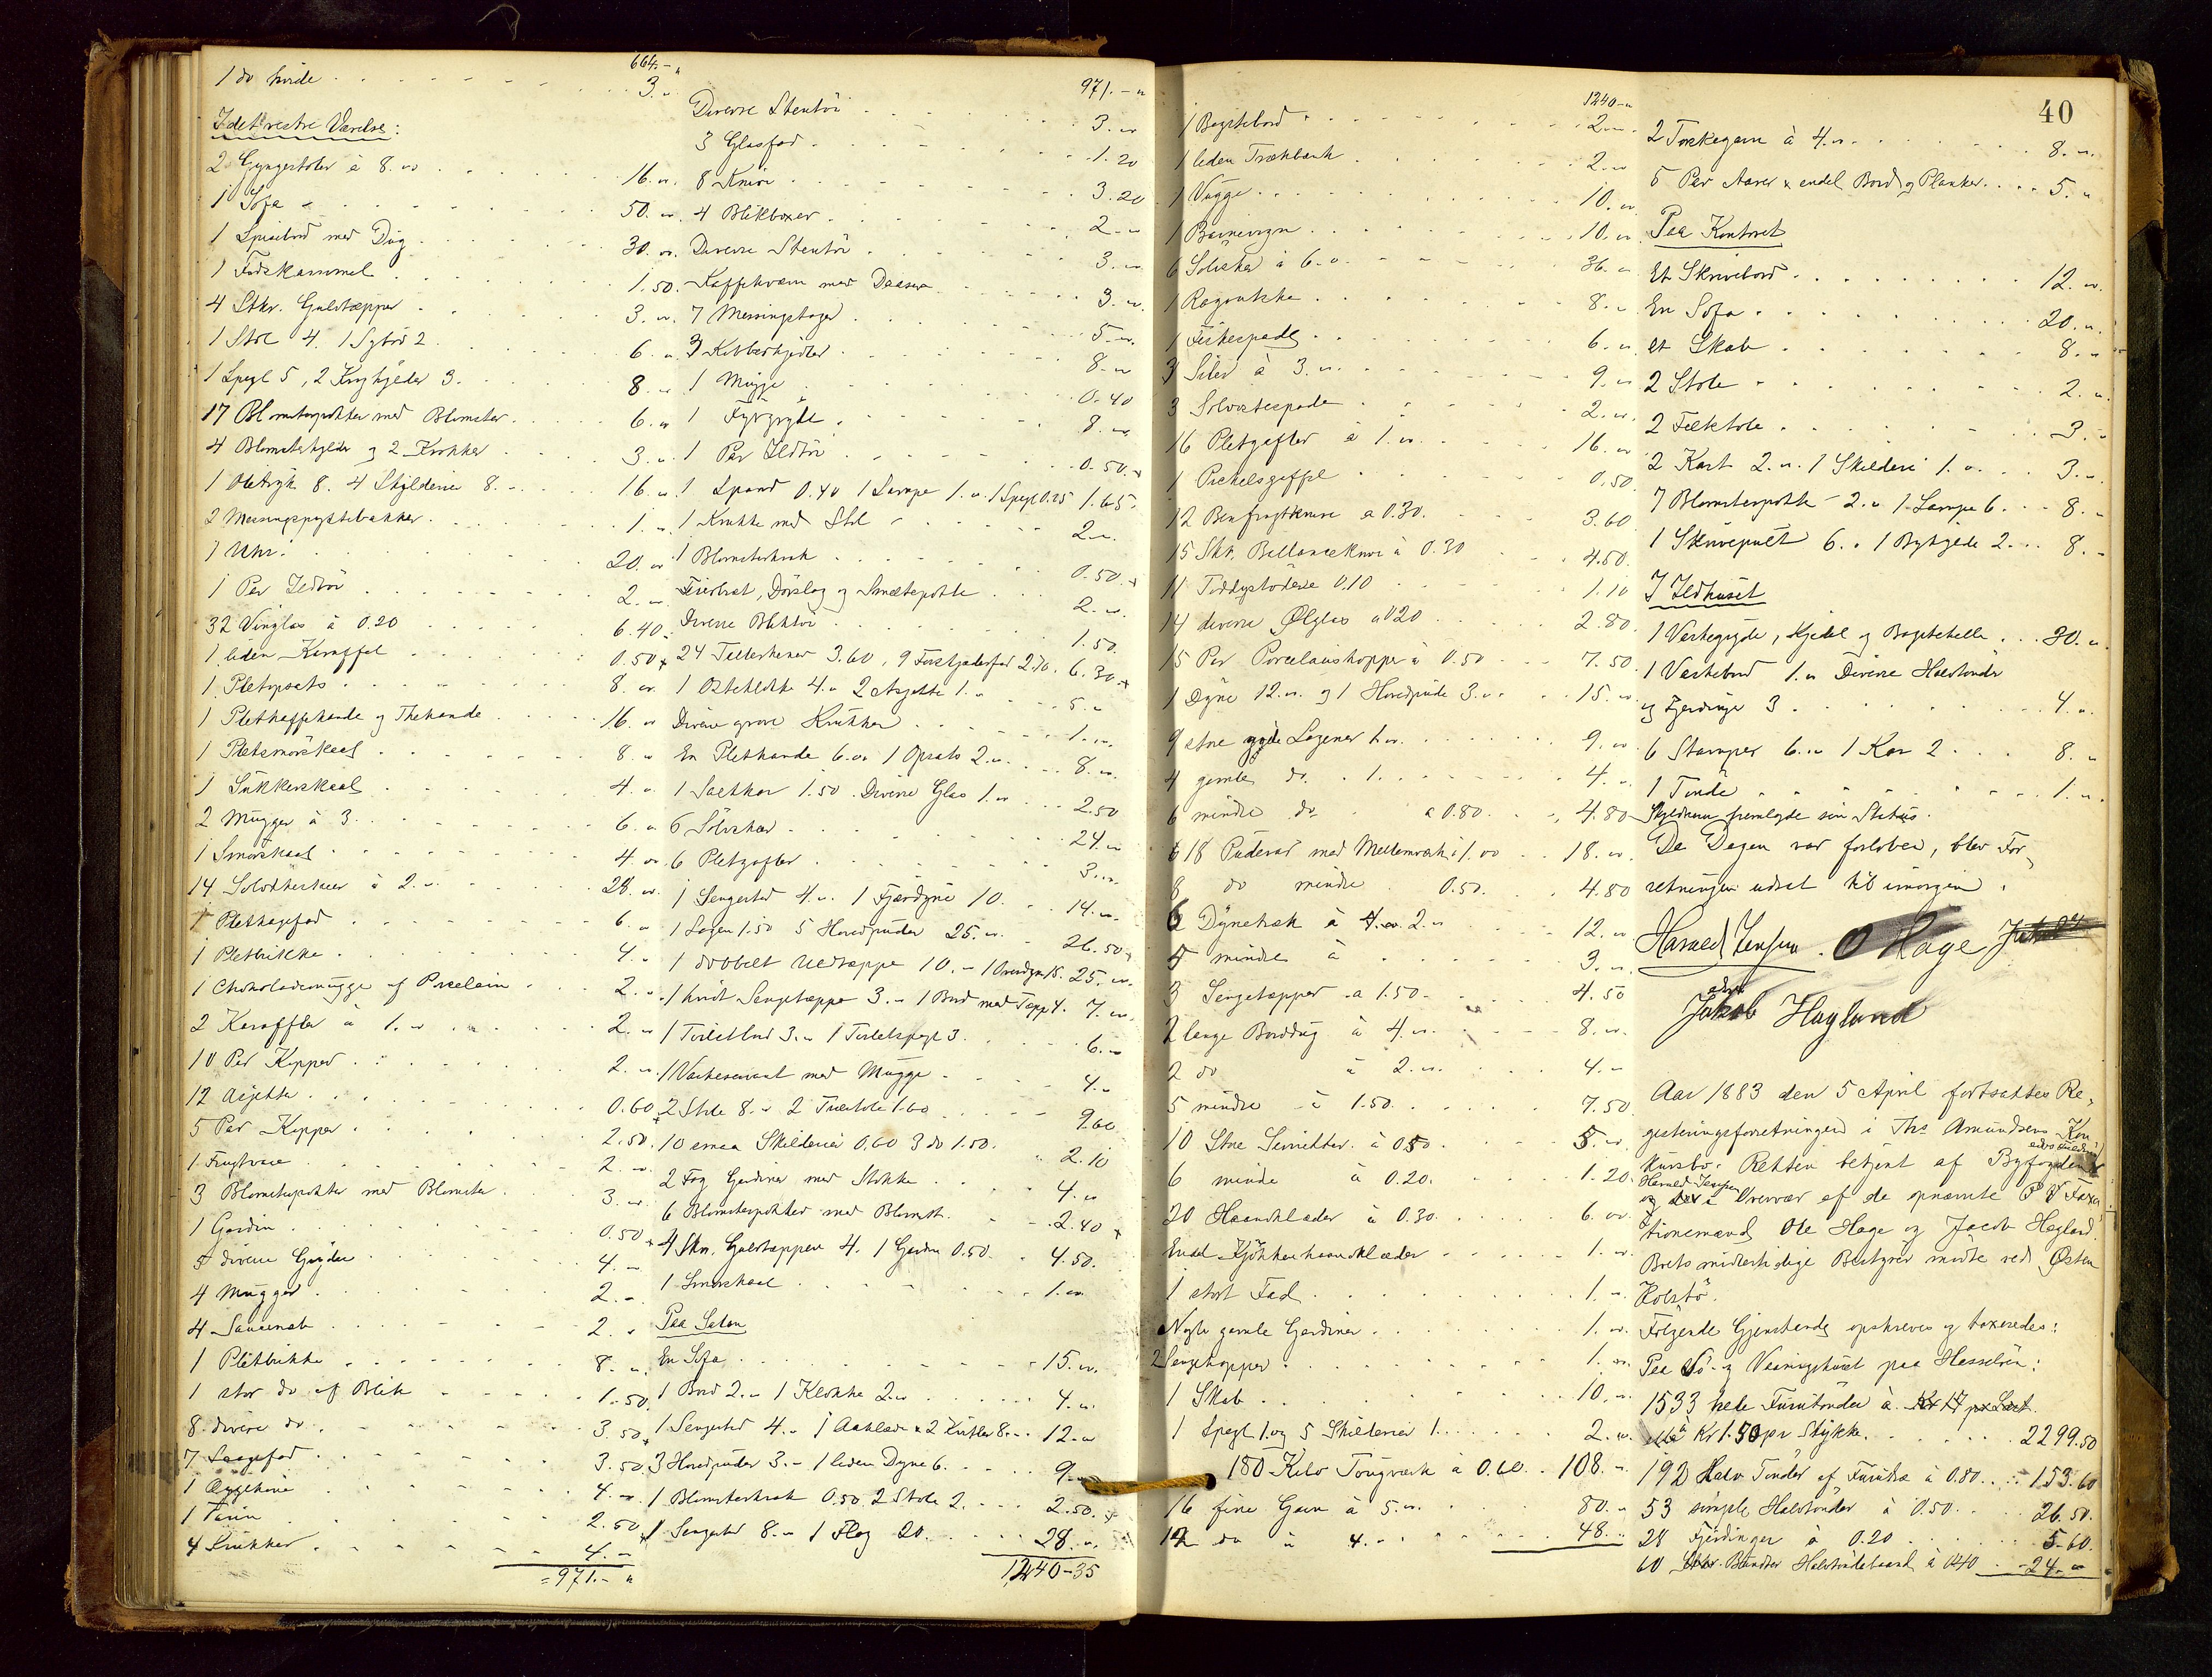 664.- "
1 do hvide . . . . 3. "
I det vestre Værelse:
2 Gyngestoler à 8. " . . . 16. "
1 Sofa . . . . 50. "
1 Spisebord med Dug . . . 30. "
1 Fodskammel . . . 1.50
4 Stkr. Gulvtæpper . . . 3. "
1 Stol 4. 1 Sybord 2 . . . 6. "
1 Speil 5, 2 Kroghylder 3. . . 8. "
17 Blomsterpotter med Blomster . . . 6. "
4 Blomsterhylder og 2 Krukker . . . 3. "
1 Olietryk 8. 4 Skilderie 8. - . . 16. "
2 Messingspyttebakker . . . 1. "
1 Uhr . . . 20. "
1 Par Ildtöi . . . 2. "
32 Vinglas à 0.20 . . . 6.40
1 liden Karaffel . . . 0.50
1 Pletopsats . . . 8. "
1 Pletkaffekande og Thekande . . . 16. "
1 Pletsmörskaal . . . 8. "
1 Sukkerskaal . . . 4. "
2 Mugger à 3. . . 6. "
1 Smörskaal . . . 4. "
14 Sölvtheskeer à 2. " . . . 28. "
1 Pletkagefad . . . 6. "
1 Pletbrikke . . . 4. "
1 Chokolademugge af Porcelain . . . 2. "
2 Karaffler à 1. " . . . 2. "
10 Par Kopper . . . 2. "
12 Asjetter . . . 0.60
5 Par Kopper . . . 2.50
1 Frugtvase . . . 2. "
3 Blomsterpotter med Blomster . . . 3. "
1 Gardin . . . 0.50
5 diverse Gryder . . . 4. "
4 Mugger . . . 2. "
4 . . . 2. "
1 Pletbrikke . . . 8. "
1 stor do af Blik . . . 1.50
8 diverse do . . . 3.50
7 . . . 3.50
1 . . . 4. "
1 Terrin . . . 2.50
4 Krukker . . . 4. "
= 971.- "
971.- "
Diverse Stentöi . . . 3. "
3 Glasfad . . . 1.20
8 Knive . . . 3.20
4 Blikboxer . . . 2. "
Diverse Stentöi . . . 3. "
Kaffekværn med Daaser . . . 3. "
7 Messingstager . . . 5. "
3 Kobberkjedler . . . 8. "
1 Mugge . . . 0.40
1 Fyrgryde . . . 8. "
1 Par Ildtöi . . . 0.50
1 Spand 0.40 1 Lampe 1. " 1 Speil 0.25 1.65
1 Krukke med Stol . . . 2. "
1 Blomsterkrak . . . 0.50
Dörslag og . . . 2. "
Diverse Bliktöi . . . 1.50
24 Tallerkener 3.60, 9 2.70. 6.30
1 Osteklokke 4. " 2 Asjette 1. " . . 5. "
Diverse grove Krukker . . . 1. "
En Pletkande 6. " 1 Opsats 2. " . . . 8. "
1 Saltkar 1.50. Diverse Glas 1. " . . . 2.50
6 Sölvskeer . . . 24. "
6 Pletgafler . . . 3. "
1 Sengested 4. " 1 Fjærdyne 10. . . 14. "
1 Lagen 1.50 5 Hovedpuder 25. " - 26.50
1 dobbelt Uldtæppe 10. - 1 Overdyne 15. 25. "
1 hvidt Sengetæppe 3. " 1 Bord med Tæppe 4. 7. "
1 Toiletbord 3. " 1 Toiletspeil 3. . . 6. "
1 Vaskeservant med Mugge . . . 4. "
2 Stole 8. " 2 Træstole 1.60 . . . 9.60
10 smaa Skilderier 0.60 3 do 1.50. . . 2.10
2 Fag Gardiner med Stokke . . . 4. "
6 Blomsterpotter med Blomst. . . 2.40
4 Skr. Gulvtæpper 4. 1 Gardin 0.50 . . 4.50.
1 Smörskaal . . . 1. "
Paa Salen
En Sofa . . . 15. "
1 Bord 2. " 1 Klokke 2. " . . . 4. "
1 Sengested 4. " 1 Aaklæde & 2 Kister 8. " . . 12. "
3 Hovedpuder 3. - 1 liden Dyne 6. . . . 9. "
1 Blomsterkrak 0.50. 2 Stole 2. . . . 2.50
1 Sengested 8. " 1 Flag 20. . . . 28. "
1240-35
1240- "
1 Bagstebord . . . 2. "
1 liden Trækbænk . . . 2. "
1 Vugge . . . 10. "
1 Barnevogn . . . 10. "
6 Sölvskeer à 6. " . . . 36. "
1 Ragoutske . . . 8. "
1 Fiskespade . . . 6. "
3 Sileer à 3. " . . . 9. "
3 Sölvostespade . . . 2. "
16 Pletgafler à 1. " . . . 16. "
1 Pickelsgaffel . . . 0.50
12 Benfrugtknive à 0.30. . . 3.60
15 Skr. Ballanceknive à 0.30 . . . 4.50
11 0.10 . . . 1.10
14 diverse Ølglas à 0.20 . . . 2.80
15 Par Porcelainskopper à 0.50 . . . 7.50
1 Dyne 12. " og 1 Hovedpude 3. " . . . 15. "
9 store gode Lagener 1. " . . . 9. "
4 gamle do . 1. . . . 4. "
6 mindre do à 0.80 . . . 4.80
18 Pudevar med Mellemværk à 1.00 . . 18. "
8 do mindre 0.50. . . 4.80
6 Dynetræk à 2. " . . . 12. "
5 mindre à . . . 3. "
3 Sengetæpper à 1.50 . . . 4.50
2 lange Borddug à 4. " . . . 8. "
2 do à 2. " . . . 4. "
5 mindre - à 1.50 . . . 7.50
10 Store Servietter à 0.50 . . . 5. "
6 mindre à 0.20. . . 1.20
20 Haandklæder à 0.30. . . 6. "
Endel Kjökkenhaandklæder . . . 1. "
1 stort Fad . . . 1. "
Nogle gamle Gardiner . . . 1. "
2 Sengetæpper . . . 1. "
1 Skab . . . 10. "
1 Speil 1. og 5 Skilderier 1. . . . 2. "
180 Kilo Tougværk à 0.60 . . 108. "
16 fine Garn à 5. " . . . 80. "
12 do à 4. " . . . 48. "
40
2 Torskegarn à 4. " . . . 8. "
5 Par Aarer & endel Bord og Planker . . . 5. "
Paa Kontoret
Et Skrivebord . . . 12. "
En Sofa . . . 20. "
et Skab . . . 8. "
2 Stole . . . 2. "
2 Feltstole . . . 3. "
2 Kart 2. " 1 Skilderi 1. " . . 3. "
7 Blomsterpotte - 2. " 1 Lampe 6. . . 8. "
1 Skrivepult 6. " 1 Boghylde 2. . . 8. "
I Ildhuset
1 Vaskegryde, Kjedel og Bagstehelle . . . 30. "
1 Vaskebord 1. " Diverse Halvtönder
og Fjerdinger 3 . . . 4. "
6 Stamper 6. " 1 Kar 2 . . . 8. "
1 Tönde . . . 1. "
Skyldneren fremlagde sin Status.
Da Dagen var forloben, blev For-
retningen udsat til imorgen.
Harald Jensen. O Hage
Jakob Hagland
Aar 1883 den 5 April fortsattes Re-
gistreringsforretningen i Ths Amundsens Kon-
kursbo. Retten betjent af Byfogden
Harald Jensen
og i Overvær af de opnævnte Taxa-
tionsmænd Ole Hage og Jacob Hagland.
Boets midlertidige Bestyrer mødte ved Østen
Holstö.
Fölgende Gjenstande opskreves og taxeredes:
Paa Sö- og Vaaningshuset paa Hasselöen:
1533 hele Furutönder à Kr 17 pr Sæt
à Kr 1.50 pr Stykke . . . 2299.50
192 Halv Tönder af Furu à 0.80 . . 153.60
53 simple Halvtönder à 0.50 . . 26.50.
28 Fjerdinger à 0.20 . . . 5.60.
60 Bundter Halvtöndebaand à 0.40 - 24. "